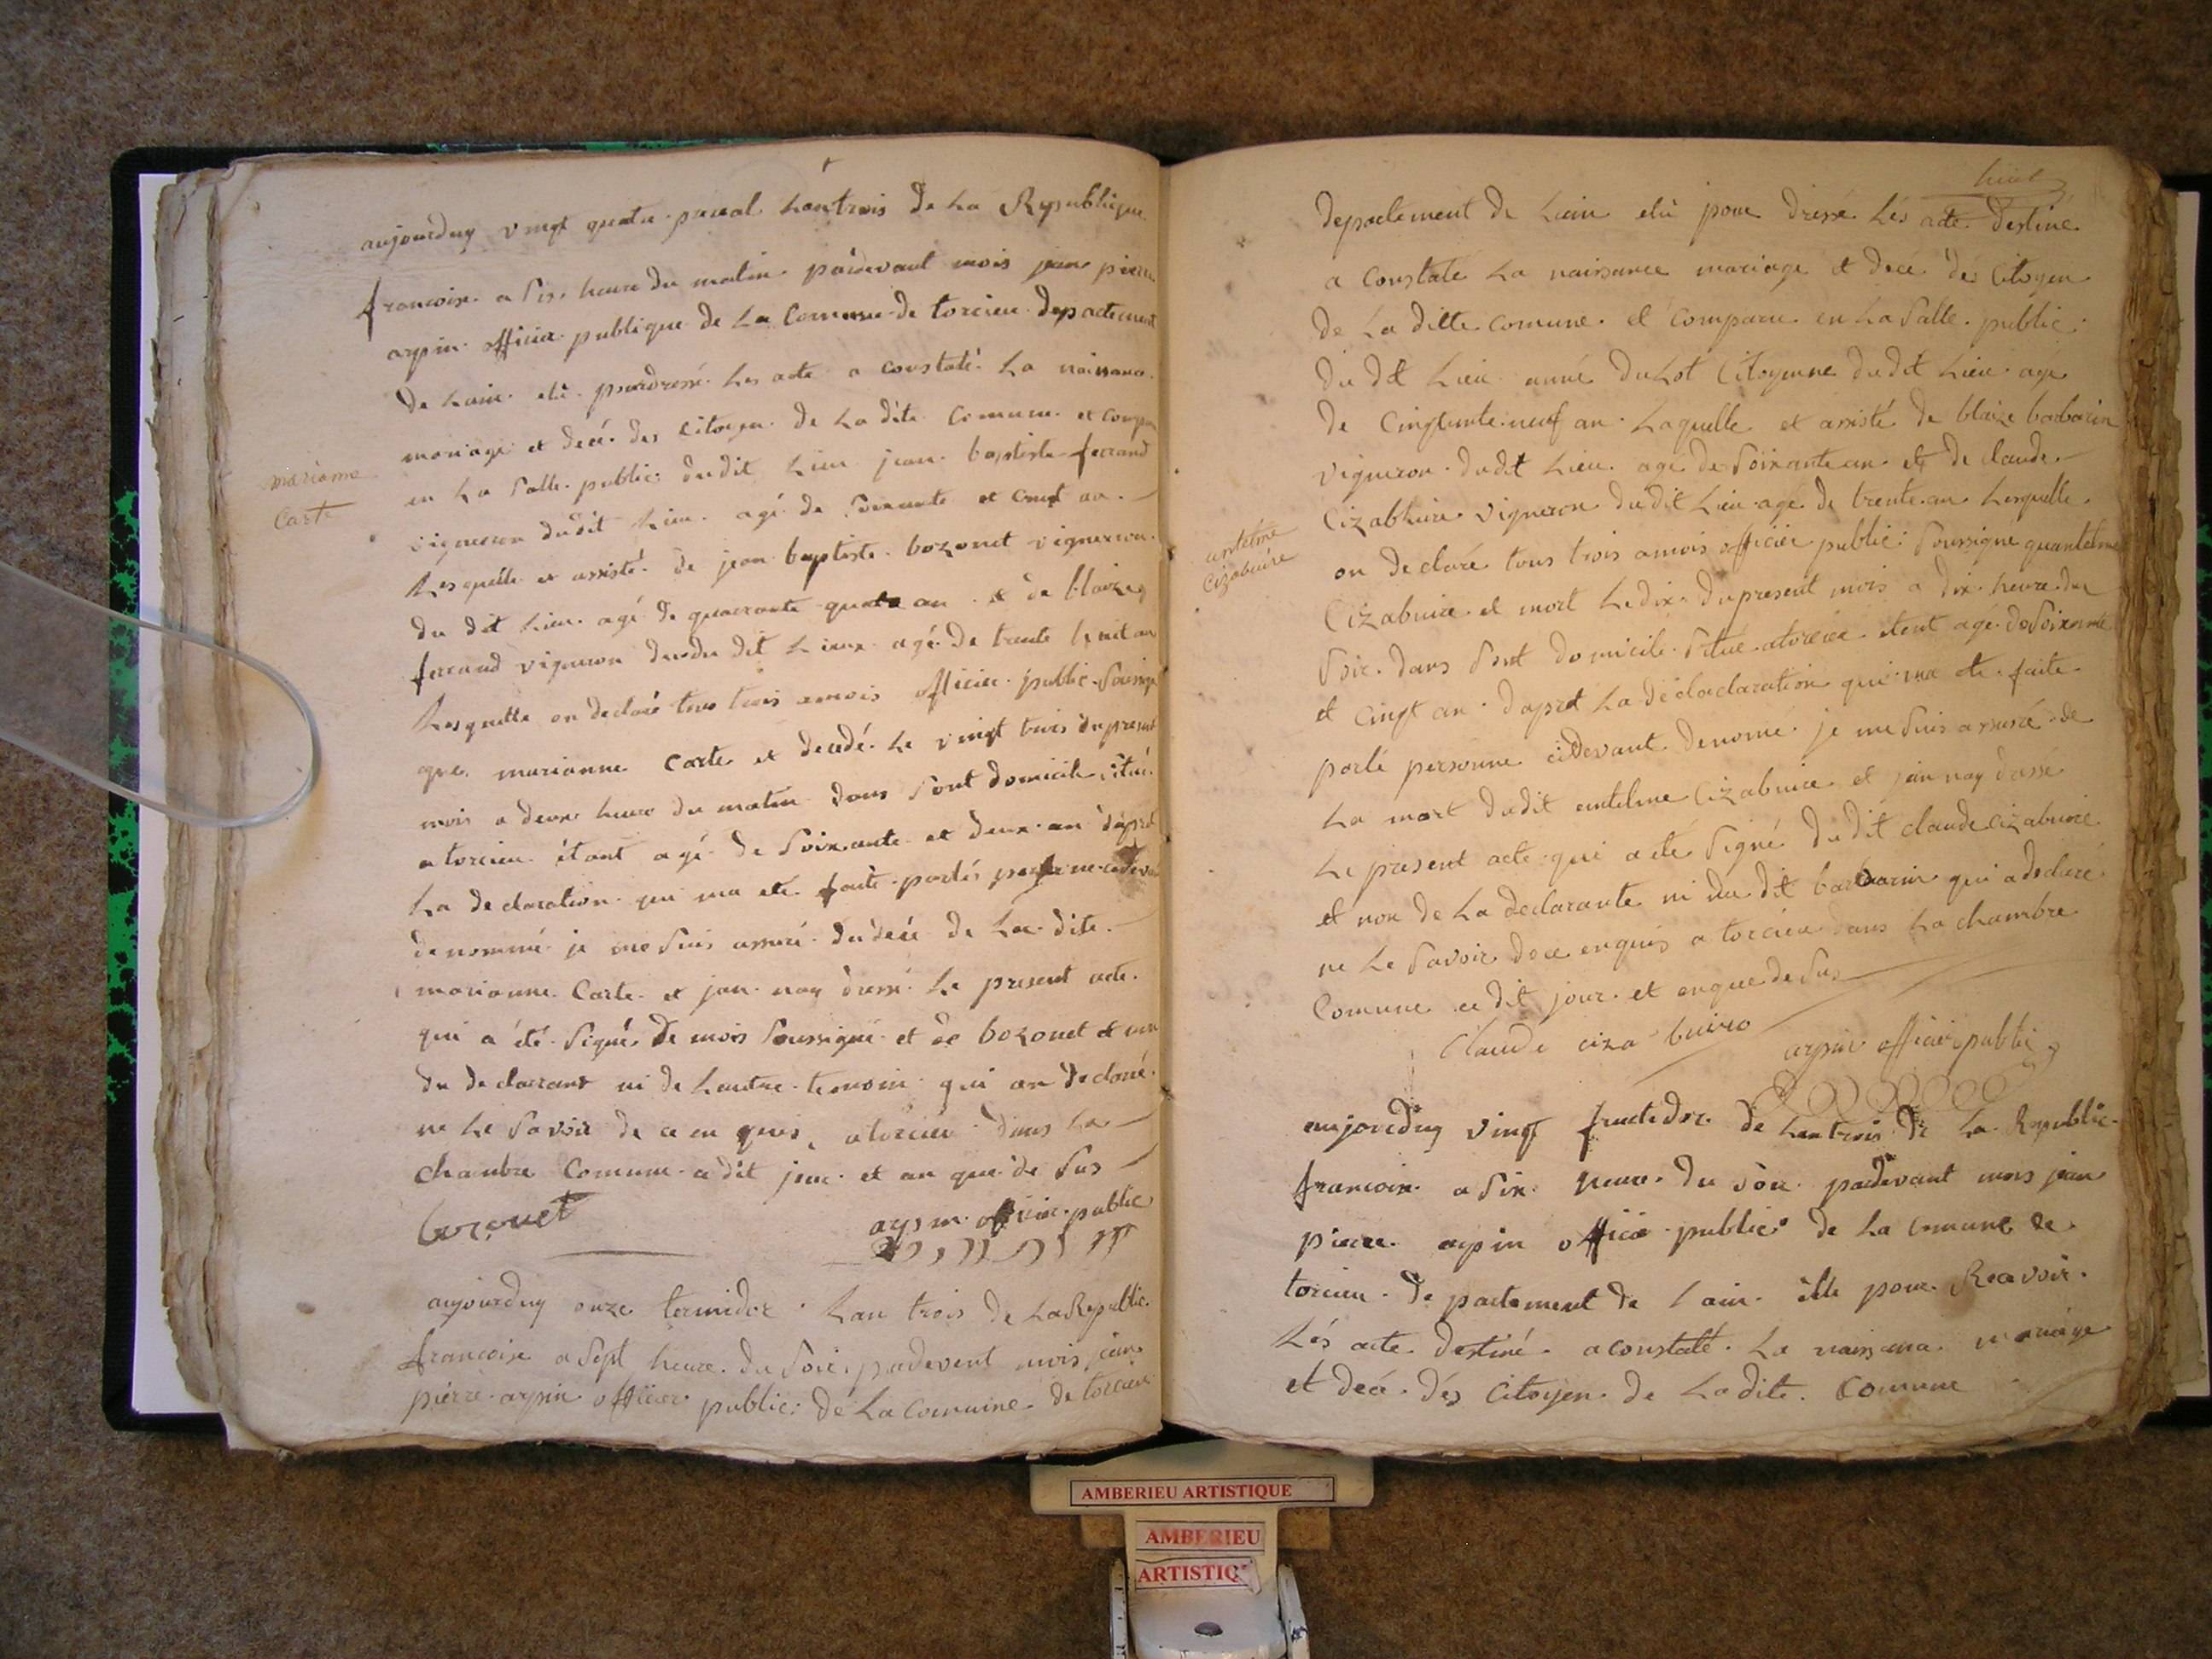 aujourduy vingt quatre prerial Lan trois de La Republique
francoise a six heure du matin pardevant mois jean pierre
arpin officier publique de La Comune de torcieu departement
de Lain elú pour dressé Les acte a constaté La naissance
mariage et decé des citoyen de La dite Comune et compar
en La Salle public dudit Lieu jean baptiste ferrand
marianne
Carte
vigneron dudit Lieu agé de soixante et cinqt an
Lesquelle et assisté de jean baptiste bozonet vigneron
du dit Lieu agé de quarante quatre an et de blaize
ferrand vigneron du dit Lieux agé de trente huit an
Lesquelle on declaré tous trois amois officier public Soussigné
que marianne Carte et decedé Le vingt trois du present
mois a deux heure du matin dans Sont domicile situé
a torcieu étant agé de Soixante et deux an dapret
La declaration qui ma eté faite par lés personne cidevant
denommé je me Suis assuré du decé de La dite
marianne Carte et jan nay dressé Le present acte
qui a été Signé de mois Soussigné et de bozonet et non
du declarant ni de Lautre temoin qui on declaré
ne Le Savoir de ce en quis a torcieu dans La
chambre Comune adit jour et an que de Sus
bozonet
arpin officier public
aujourduy onze termidor Lan trois de La Republic
francoise a Sept heure du Soir pardevent mois jean
pierre arpin officier public de La Comuine de torcieu
huit
departement de Lain elú pour dressé Lés acte destiné
a constaté La naissance mariage et decé dés Citoyen
de La ditte comune et comparu en La Salle public
du dit Lieu anné duLot Citoyenne dudit Lieu agé
de cinqtante neuf an Laquelle et assisté de blaize barbarin
vigneron dudit Lieu agé de Soixante an et de claude
Cizabuire vigneron dudit Lieu agé de trente an Lesquelle
antelme
Cizabuire
on declaré tous trois amois officier public Soussigné quantelme
Cizabuire et mort Le dix du present mois a dix heure du
Soir dans Sont domicile Situé atorcieu etent agé de Soixante
et cinqt an dapret La déclaclaration qui ma ete faite
par lé personne cidevant denomé je me Suis assuré de
La mort dudit antelme Cizabuire et jan nay dressé
Le present acte qui a eté Signé du dit claude Cizabuire
et non de La declarante ni du dit barbarin qui a declaré
ne Le Savoir de ce enquis a torcieu dans La chambre
Comune ce dit jour et an que de Sus
Claude ciza buire
arpin officier public
aujourduy vingt fructidor de Lan trois de La Republic
francoise a Six heure du soir pardevant mois jean
pierre arpin officie public de La comune de
torcieu departement de Lain élu pour Recevoir
Lés acte destiné a constaté La naissance mariage
et decé dés Citoyen de La dite Comune
AMBERIEU ARTISTIQUE
AMBERIEU
ARTISTIQ